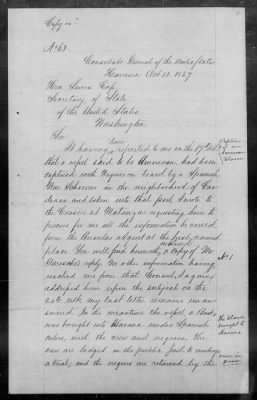 Copy in
No 63
Consulate General of the United States
Havana Oct 13. 1857
Hon Lewis Cass
Secretary of State
of the United States.
Washington
Sir
been
It having reported to me on the 17th ulto
that a vessel said to be American, had been
captured with Negroes on board by a Spanish
War Schooner in the neighborhood of Car-
denas and taken into that port, I wrote to
the Consul at Matanzas requesting him to
procure for me all the information he could,
from the Consular agent at the first named
place. You will find herewith, a copy of Mr
reply. No other information having
reached me from that Consul, I again
addressed him upon the subject on the
24th ulto, my last letter remains unan-
swered. In the meantime the vessel, a
was brought into Havana under Spanish
colors, with the crew and negroes. The
crew are lodged in the public jail to undergo
a trial, and the negroes are retained by the
Capture
an
American
No 1
the Slaver
brought to
Havana
crew in
prison